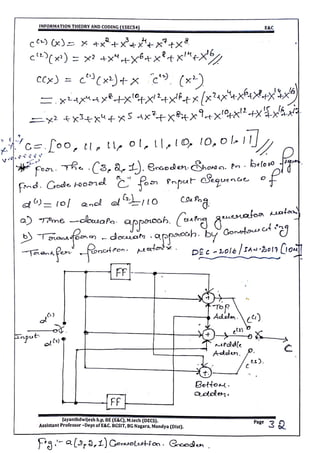 INFORMATION THEORY AND CODING (15EC54) E&C
C⁽¹⁾(x) = x + x² + x³ + x⁴ + x⁷ + x⁸
C⁽²⁾(x²) = x² + x⁴ + x⁶ + x⁸ + x¹⁴ + x¹⁶
C(x) = C⁽¹⁾(x²) + x C⁽²⁾(x²)
C = [00, 11, 11, 01, 11, 10, 10, 01, 11]
For The (3,2,1) Encoder Shown in below figure
Find Code word C for Input Sequence of
d⁽¹⁾ = 101 and d⁽²⁾ = 110 Using
a) Time-domain approach (using generator matrix)
b) Transform-domain approach by Constructing
Transfer function Matrix
DEC-2016/JAN-2017 [10M]
FF
d⁽¹⁾
Top
Adder
C⁽¹⁾
Input
C
d⁽²⁾
Middle
Adder
Bottom
adder
FF
Jayanthdwijesh h p, BE (E&C), M.tech (DECS).
Assistant Professor –Dept of E&C. BGSIT, BG Nagara, Mandya (Dist). Page 32
Fig:- a (3,2,1) Convolution Encoder